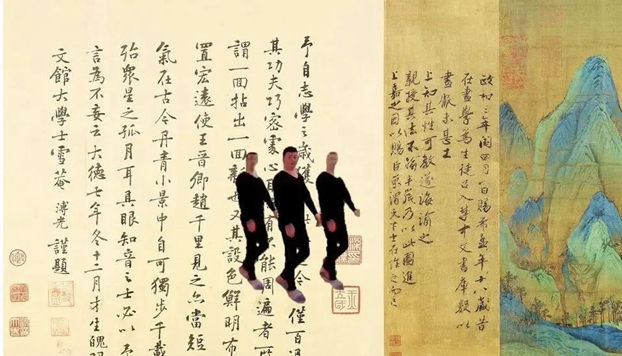 政和三年閏四月一日賜希孟年十八歲昔
在畫學為生徒召入禁中文書庫數以
畫獻未甚工
上知其性可教遂誨諭之
親授其法不踰半歲乃以此圖進
上嘉之因以賜臣京謂天下士在作之而已
予自志學之歲獲 今 僅百過
其功夫巧密處心目 有不能周遍者
謂一回拈出一回 也又其設色鮮明布
置宏遠使王晉卿趙千里見之亦當短
氣在古今丹青小景中自可獨步千載
殆眾星之孤月耳具眼知音之士必以予
言為不妄云大德七年冬十二月才生魄
文館大學士雪菴溥光謹題